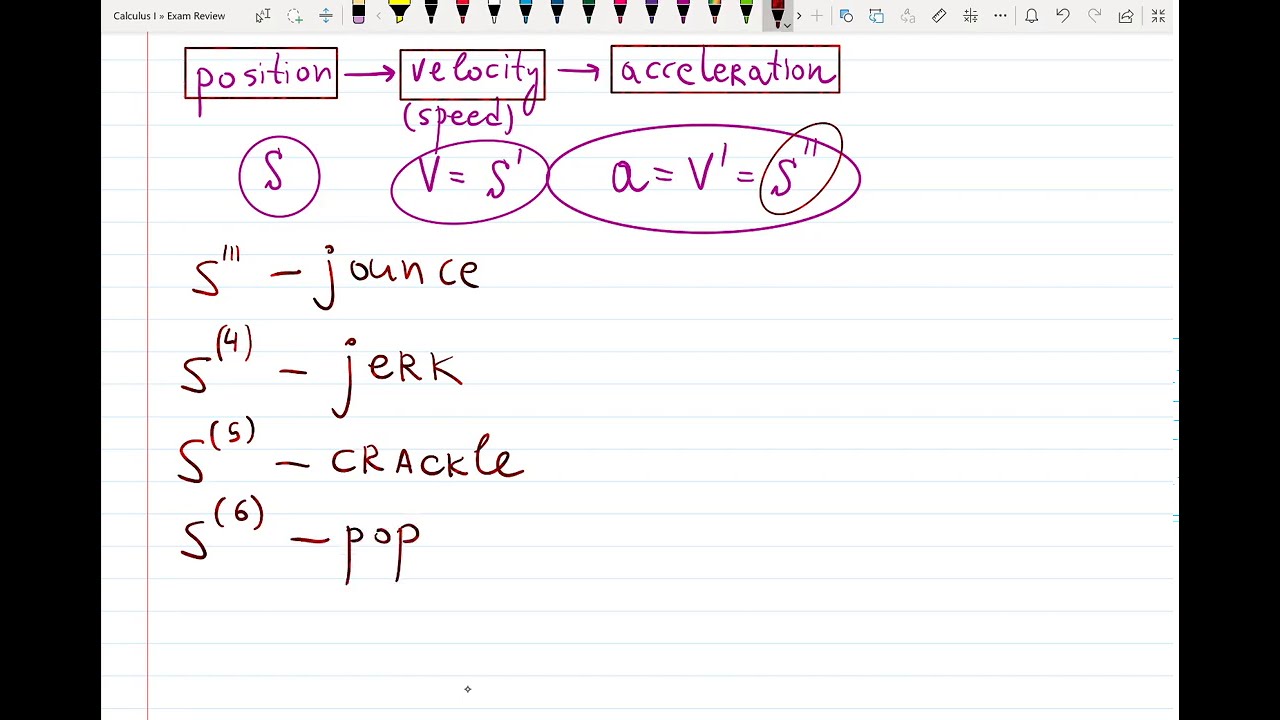 Calculus I » Exam Review
position → velocity → acceleration
(speed)
S V = S' a = V' = S''
S''' – jounce
S^(4) – jERK
S^(5) – CRACKle
S^(6) – pop